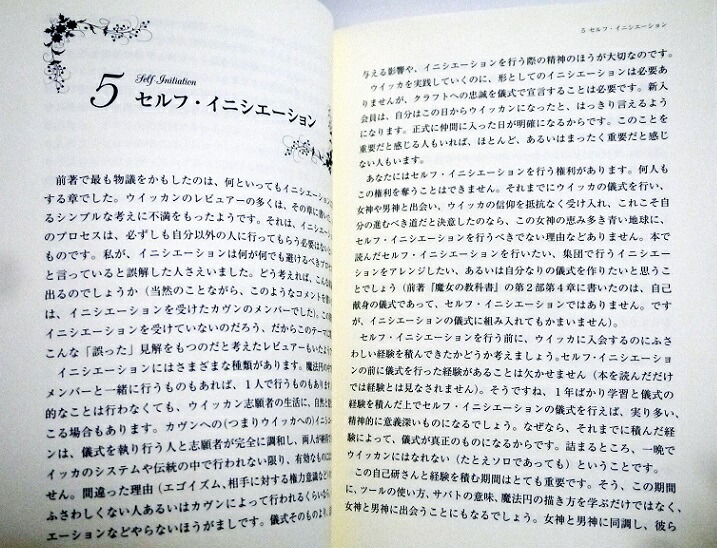 5
Self Initiation
セルフ・イニシエーション
前著で最も物議をかもしたのは、何といってもイニシエーション
する章でした。ウイッカンのレビュアーの多くは、その章に書いた
るシンプルな考えに不満をもったようです。それは、イニシエーション
のプロセスは、必ずしも自分以外の人に行ってもらう必要はない
ものです。私が、イニシエーションは何が何でも避けるべき
と言っていると誤解した人さえいました。どう考えれば、こんな
出るのでしょうか(当然のことながら、このようなコメントを
は、イニシエーションを受けたカヴンのメンバーでした)。
イニシエーションを受けていないのだろう、だからこのテーマに
こんな「誤った」見解をもつのだと考えたレビュアーもいたよう
イニシエーションにはさまざまな種類があります。魔法円の中で
メンバーと一緒に行うものもあれば、1人で行うものもあります
的なことは行わなくても、ウイッカン志願者の生活に、自然と
こる場合もあります。カヴンへの(つまりウイッカへの)イニシエーショ
ンは、儀式を執り行う人と志願者が完全に調和し、両人が
イッカのシステムや伝統の中で行われない限り、有効なものには
せん。間違った理由(エゴイズム、相手に対する権力意識など)
ふさわしくない人あるいはカヴンによって行われるくらいなら、
エーションなどやらないほうがましです。儀式そのものより、
5 セルフ・イニシエーション
与える影響や、イニシエーションを行う際の精神のほうが大切なのです。
ウイッカを実践していくのに、形としてのイニシエーションは必要あ
りませんが、クラフトへの忠誠を儀式で宣言することは必要です。新入
会員は、自分はこの日からウイッカンになったと、はっきり言えるよう
になります。正式に仲間に入った日が明確になるからです。このことを
重要だと感じる人もいれば、ほとんど、あるいはまったく重要だと感じ
ない人もいます。
あなたにはセルフ・イニシエーションを行う権利があります。何人も
この権利を奪うことはできません。それまでにウイッカの儀式を行い、
女神や男神と出会い、ウイッカの信仰を抵抗なく受け入れ、これこそ自
分の進むべき道だと決意したのなら、この女神の恵み多き青い地球に、
セルフ・イニシエーションを行うべきでない理由などありません。本で
読んだセルフ・イニシエーションを行いたい、集団で行うイニシエー
ションをアレンジしたい、あるいは自分なりの儀式を作りたいと思うこ
とでしょう(前著『魔女の教科書』の第2部第4章に書いたのは、自己
献身の儀式であって、セルフ・イニシエーションではありません。です
が、イニシエーションの儀式に組み入れてもかまいません)。
セルフ・イニシエーションを行う前に、ウイッカに入会するのにふさ
わしい経験を積んできたかどうか考えましょう。セルフ・イニシエーショ
ンの前に儀式を行った経験があることは欠かせません(本を読んだだけ
では経験とは見なされません)。そうですね、1年ばかり学習と儀式の
経験を積んだ上でセルフ・イニシエーションの儀式を行えば、実り多い、
精神的に意義深いものになるでしょう。なぜなら、それまでに積んだ経
験によって、儀式が真正のものになるからです。詰まるところ、一晩で
ウイッカンにはなれない(たとえソロであっても)ということです。
この自己研さんと経験を積む期間はとても重要です。そう、この期間
に、ツールの使い方、サバトの意味、魔法円の描き方を学ぶだけではなく、
女神と男神に出会うことにもなるでしょう。女神と男神に同調し、彼ら